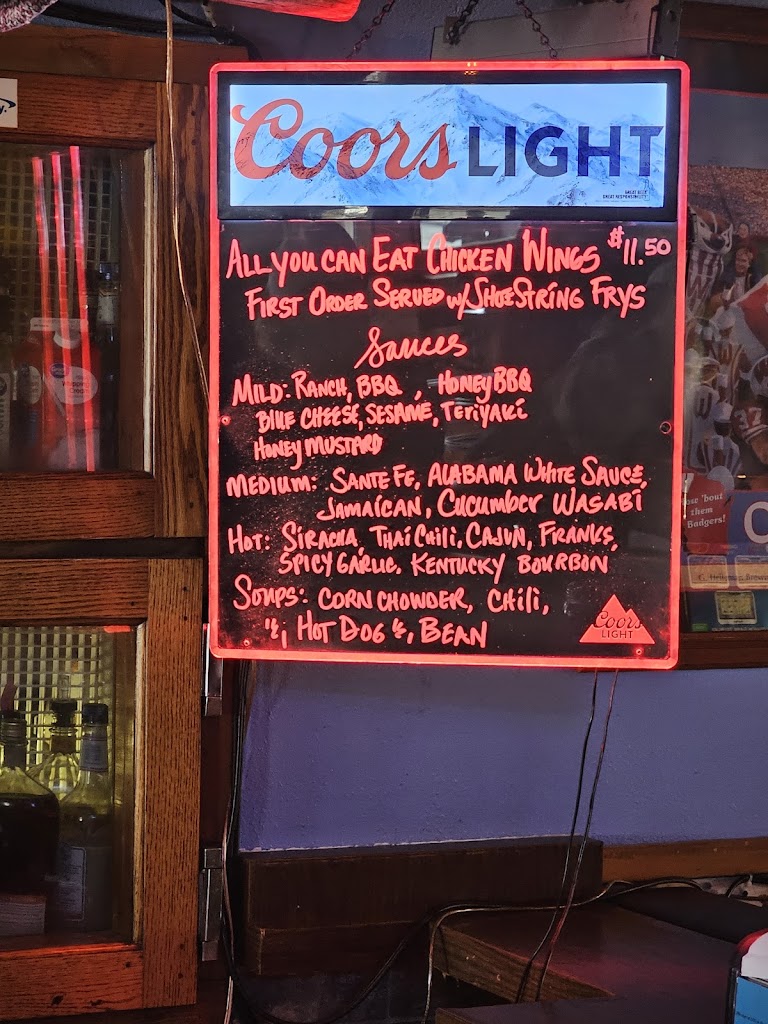 Coors LIGHT
GREAT BEER
GREAT RESPONSIBILITY
ALL YOU CAN EAT CHICKEN WINGS $11.50
FIRST ORDER SERVED W/ SHOESTRING FRYS
Sauces
MILD: RANCH, BBQ, HONEY BBQ
BLUE CHEESE, SESAME, TERIYAKI
HONEY MUSTARD
MEDIUM: SANTE FE, ALABAMA WHITE SAUCE,
JAMAICAN, CUCUMBER WASABI
HOT: SIRACHA, THAI CHILI, CAJUN, FRANKS,
SPICY GARLIC, KENTUCKY BOURBON
SOUPS: CORN CHOWDER, CHILI,
HOT DOG, BEAN
Coors
LIGHT
'bout
them
Badgers!